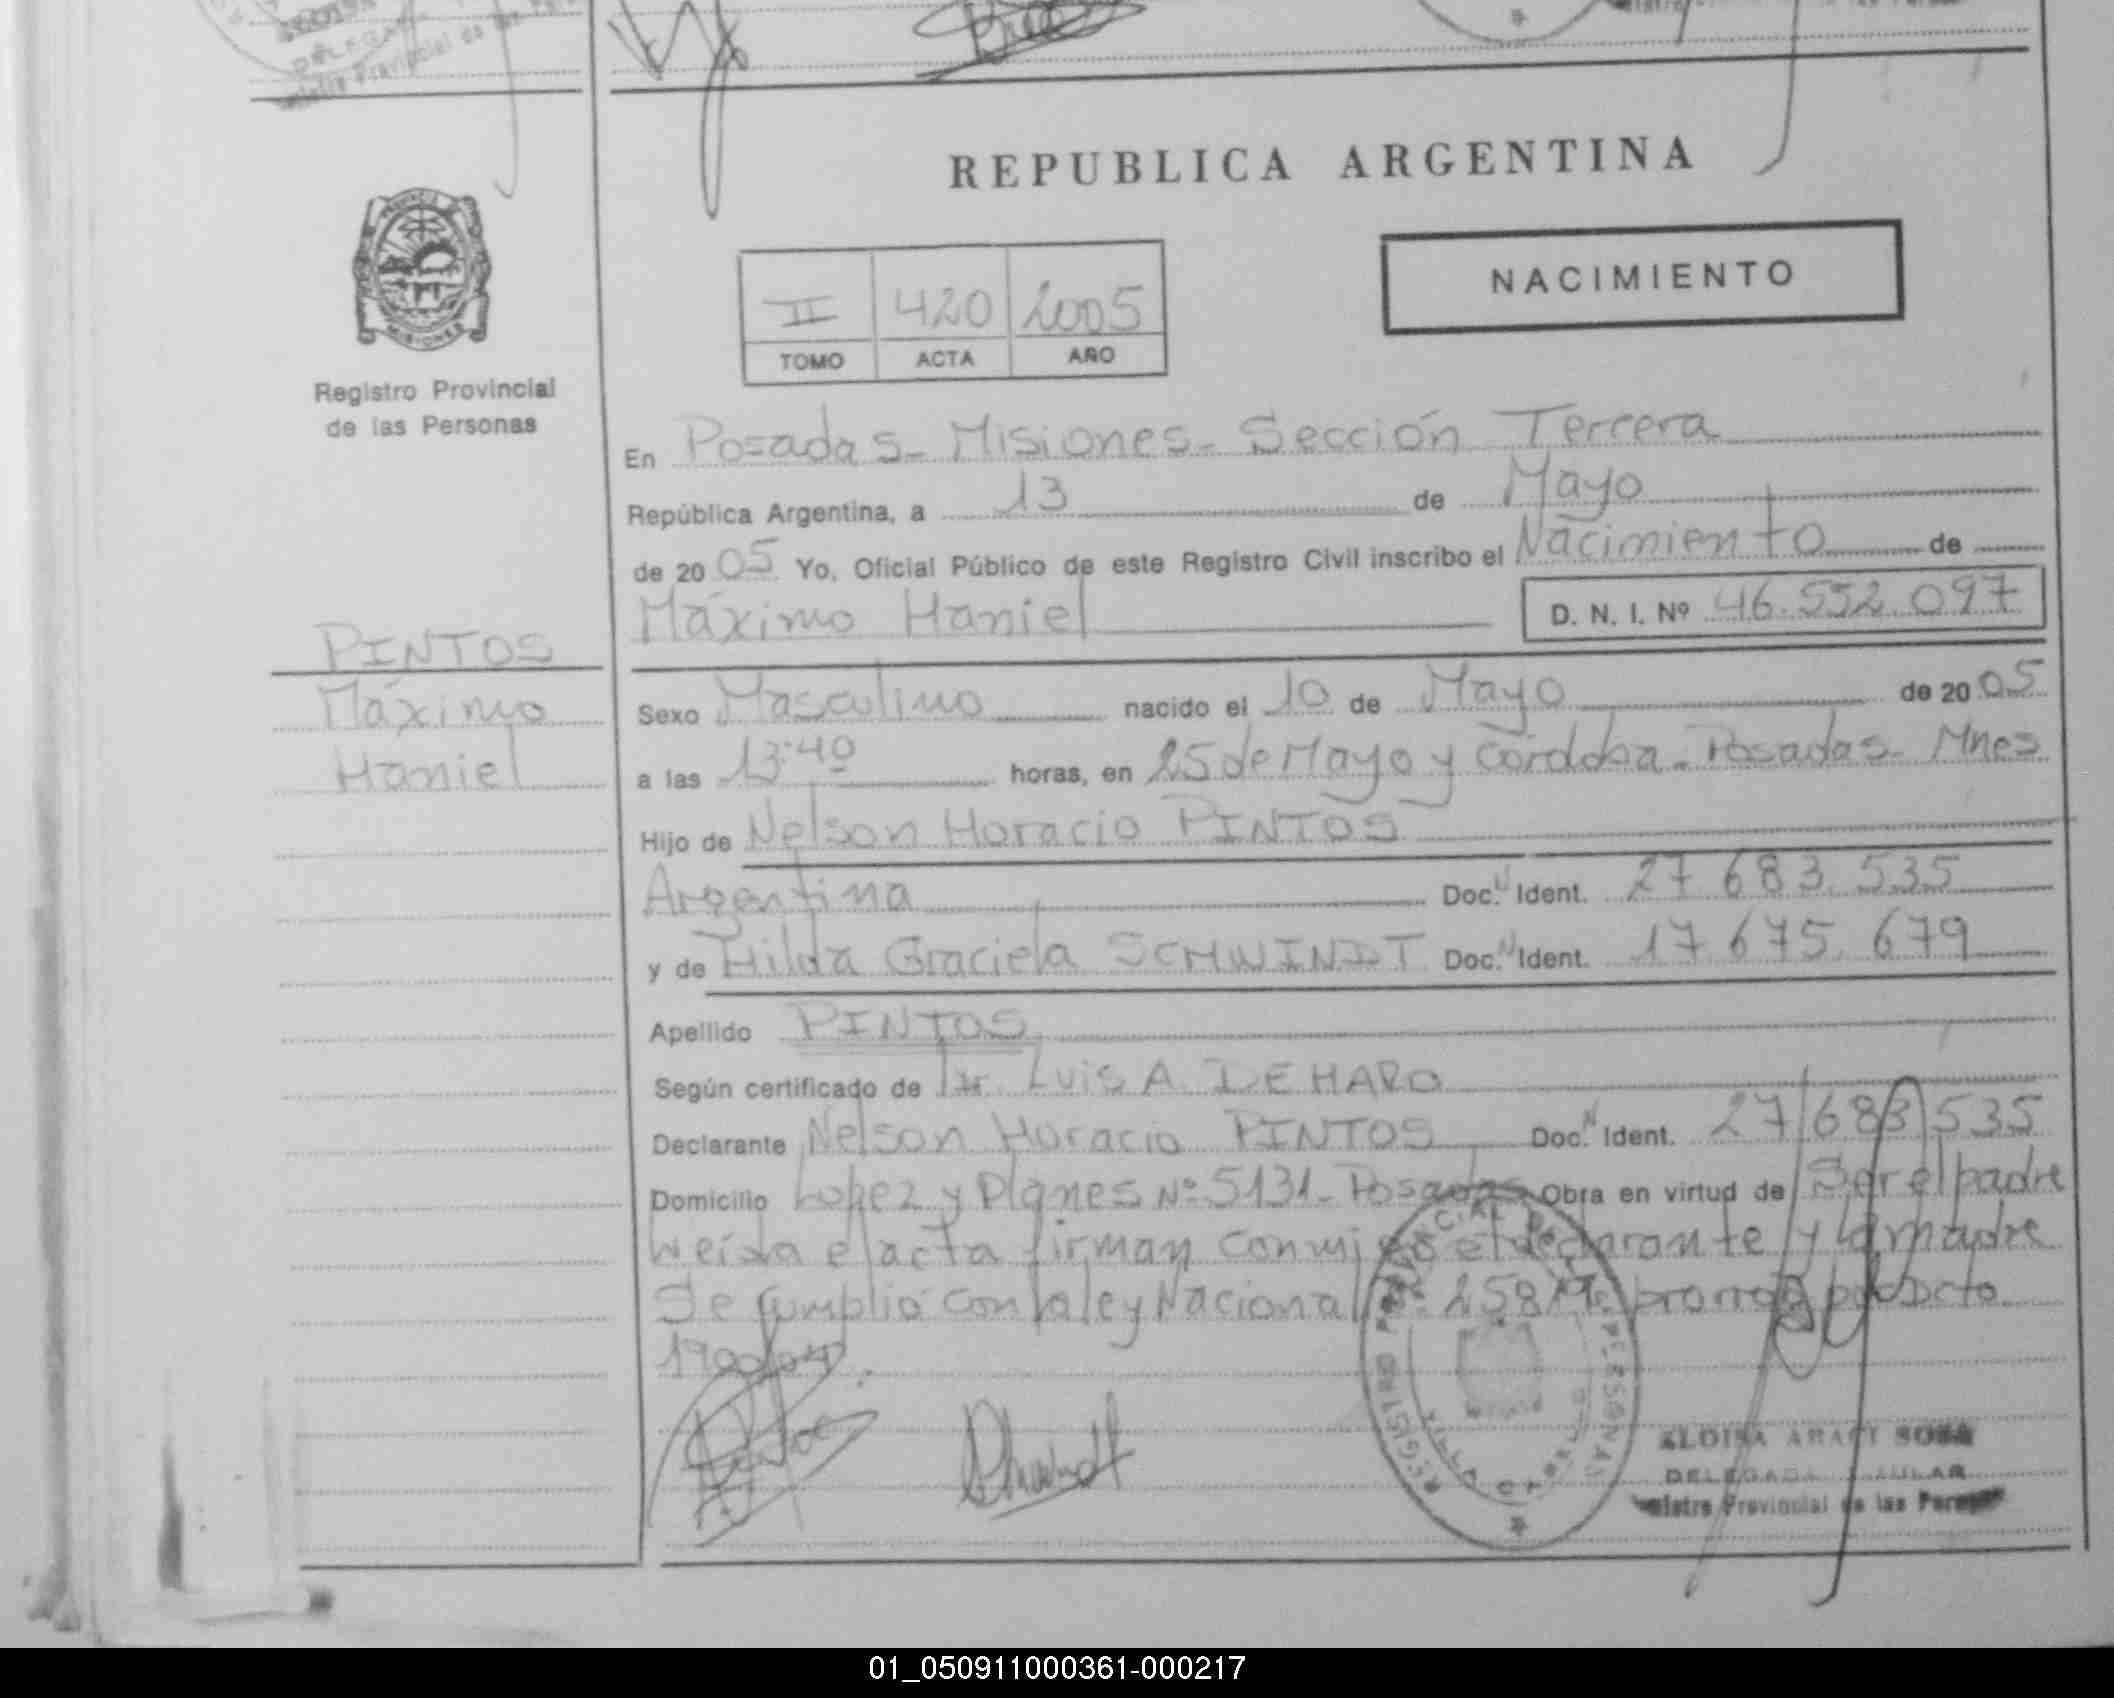 DELEGA
REPUBLICA ARGENTINA
NACIMIENTO
II 420 2005
TOMO ACTA AÑO
PROVINCIA DE
MISIONES
Registro Provincial
de las Personas
En Posadas - Misiones - Sección Tercera
República Argentina, a 13 de Mayo
de 20 05 Yo, Oficial Público de este Registro Civil inscribo el Nacimiento de
Máximo Haniel D. N. I. Nº 46.552.097
PINTOS
Máximo
Haniel
Sexo Masculino nacido el 10 de Mayo de 20 05
a las 13:40 horas, en 25 de Mayo y Córdoba - Posadas - Mnes
Hijo de Nelson Horacio PINTOS
Argentina Doc. N Ident. 27 683.535
y de Hilda Graciela SCHWINDT Doc. N Ident. 17.675.679
Apellido PINTOS
Según certificado de Dr. Luis A. DE HARO
Declarante Nelson Horacio PINTOS Doc. N Ident. 27 683 535
Domicilio Lopez y Planes Nº 5131 - Posadas Obra en virtud de Ser el padre
Leída el acta firman conmigo el declarante y la madre
Se cumplió con la ley Nacional prorrog por Dcto.
REGISTRO PROVINCIAL DE LAS PERSONAS
ARACI SOSA
DELEGADA TITULAR
Provincial de las Personas
01_050911000361-000217